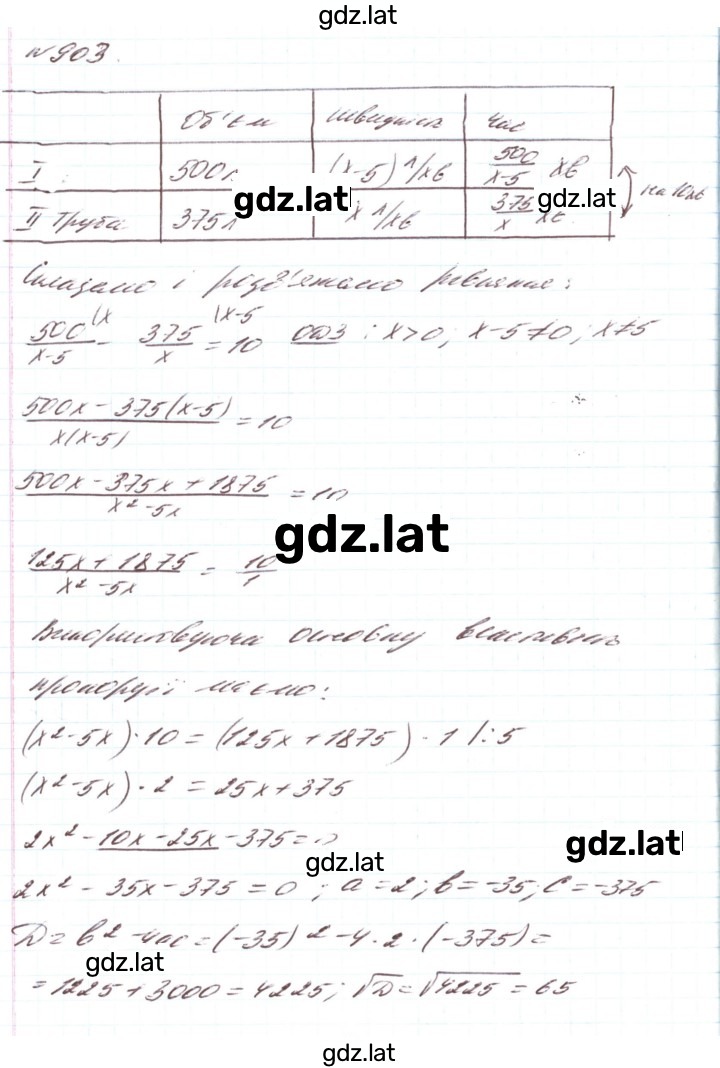 gdz.lat
№903.
Об'єм Швидкість Час
I : 500л (x-5) л/хв 500/x-5 хв
gdz.lat
gdz.lat
на 10хв
II Труба 375л x л/хв 375/x хв.
Складемо і розв'яжемо рівняння:
500/x-5 (x - 375/x (x-5 = 10 ОДЗ: x>0; x-5≠0; x≠5
500x-375(x-5)/x(x-5) = 10
500x-375x+1875/x²-5x = 10
gdz.lat
125x+1875/x²-5x = 10/1
Використовуючи основну властивість
пропорції маємо:
(x²-5x)·10 = (125x+1875)·1 /:5
(x²-5x)·2 = 25x+375
2x²-10x-25x-375=0
gdz.lat
gdz.lat
2x²-35x-375=0; a=2; b=-35; c=-375
D=b²-4ac=(-35)²-4·2·(-375)=
gdz.lat
=1225+3000=4225; √D=√4225=65
gdz.lat